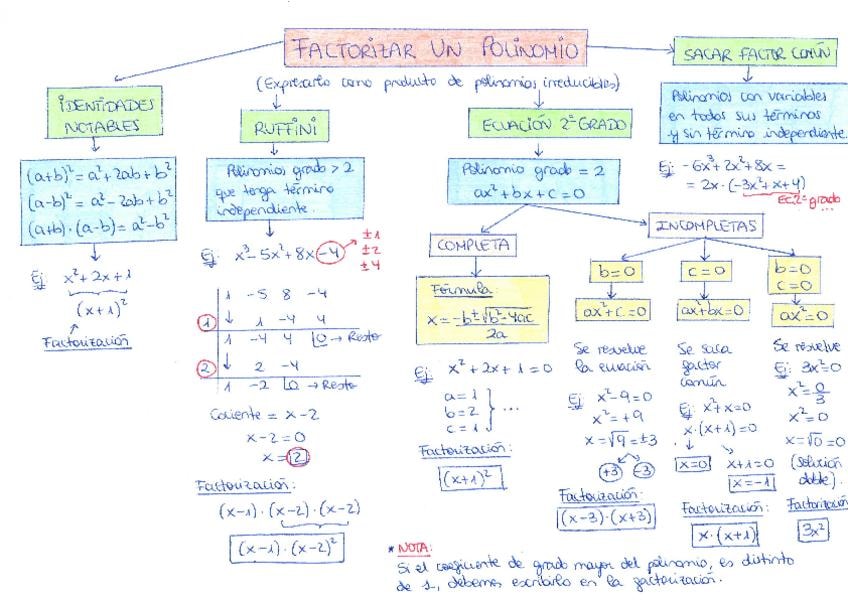 FACTORIZAR UN POLINOMIO
(Expresarlo como producto de polinomios irreducibles)
IDENTIDADES
NOTABLES
(a+b)² = a² + 2ab + b²
(a-b)² = a² - 2ab + b²
(a+b)·(a-b) = a² - b²
Ej: x² + 2x + 1
(x+1)²
Factorización
RUFFINI
Polinomios grado > 2
que tenga término
independiente.
Ej: x³ - 5x² + 8x - 4
±1
±2
±4
1 -5 8 -4
1 ↓ 1 -4 4
1 -4 4 0 → Resto
2 ↓ 2 -4
1 -2 0 → Resto
Cociente = x-2
x-2=0
x=2
Factorización:
(x-1)·(x-2)·(x-2)
(x-1)·(x-2)²
ECUACIÓN 2º GRADO
Polinomio grado = 2
ax² + bx + c = 0
COMPLETA
Fórmula:
x = -b ± √b² - 4ac
2a
Ej: x² + 2x + 1 = 0
a = 1
b = 2
c = 1
...
Factorización:
(x+1)²
INCOMPLETAS
b=0
ax²+c=0
Se resuelve
la ecuación
Ej: x²-9=0
x²=+9
x=√9=±3
+3 -3
Factorización:
(x-3)·(x+3)
c=0
ax²+bx=0
Se saca
factor
común
Ej: x²+x=0
x·(x+1)=0
x=0 x+1=0
x=-1
Factorización:
x·(x+1)
b=0
c=0
ax²=0
Se resuelve
Ej: 3x²=0
x²=0/3
x²=0
x=√0=0
(solución
doble).
Factorización
3x²
SACAR FACTOR COMÚN
Polinomios con variables
en todos sus términos
y sin término independiente.
Ej: -6x³+2x²+8x =
= 2x·(-3x²+x+4)
EC.2º grado
...
* NOTA:
Si el coeficiente de grado mayor del polinomio, es distinto
de 1, debemos escribirlo en la factorización.